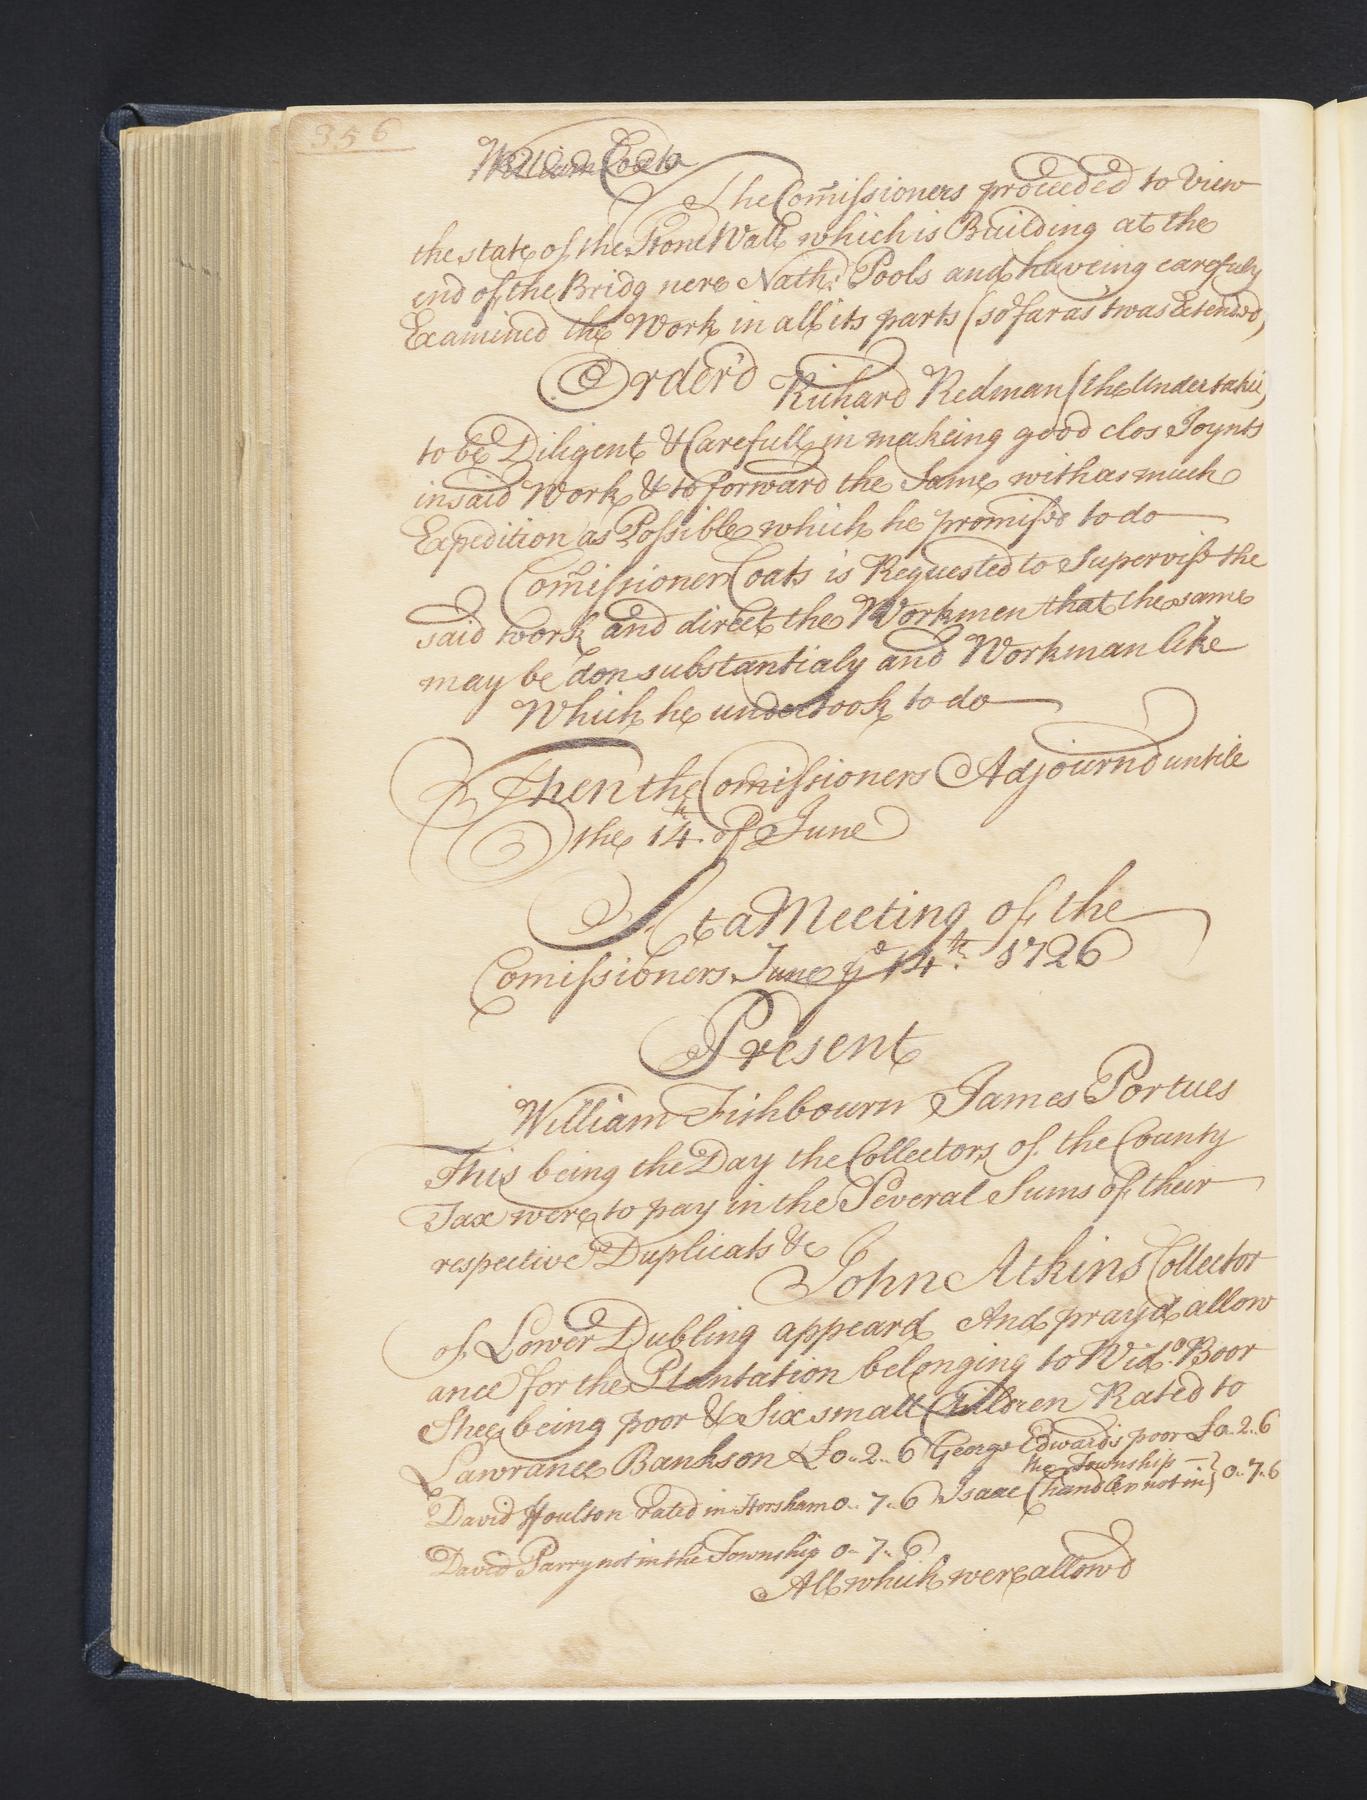 356
William Coats
The Com̃issioners proceeded to View
the state of the Stone Wall which is Building at the
end of the Bridg nere Nath: Pools and haveing carefuly
Examined the Work in all its parts (so far as twas Extended)
Order'd Richard Redman (the Undertaker)
to be Diligent & Carefull in makeing good clos Joynts
in said Work & to forward the Same with as much
Expedition as Possible which he promis'd to do
Com̃issioner Coats is Requested to Supervise the
said work and direct the Workmen that the same
may be don substantialy and Workman like
Which he undertook to do
Then the Com̃issioners Adjournd untile
the 14th. of June
At a Meeting of the
Comissioners June ye 14th. 1726
Present
William Fishbourn James Portues
This being the Day the Collectors of the County
Tax were to pay in the Several Sums of their
respective Duplicats &c
John Atkins Collector
of Lower Dubling appeard And prayd allow
ance for the Plantation belonging to Wido. Boor
Shee being poor & Six small Children Rated to
Lawrance Bankson £0..2..6 George Edwards poor £0..2..6
David Houlson rated in Horsham 0..7..6 Isaac Chandler not in the Township } 0..7..6
David Parry not in the Township 0..7..6
All which were allowd